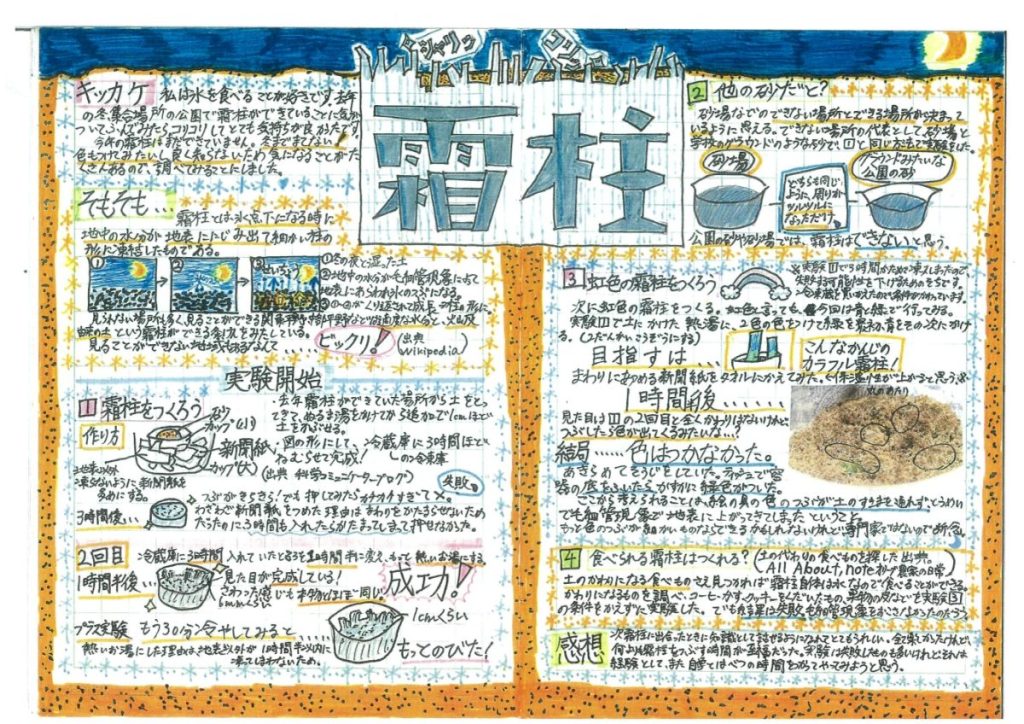 ジャリッ
コリッ
霜柱
キッカケ 私は氷を食べることが好きです。去年
の冬、集合場所の公園で霜柱ができていることに気が
ついてふんでみたらコリコリしてとても気持ちが良かったです。
今年の霜柱はまだできていません。冬まで待てない!
色もつけてみたいし良く知らないため気になることがた
くさんあるので、調べてみることにしました。
そもそも…
霜柱とは氷点下になる時に
地中の水分が地表ににじみ出て細かい柱の
形に凍結したものである。
①
②
③
せいちょう
①冬の夜と湿った土
②地中の水分が毛細管現象によって
地表にあらわれ氷のつぶになる。
見られない場所も多く、見ることができる関東
土という霜柱ができる条件をみたしている。
見ることができない地域もあるなんて……
ビックリ!
(出典
Wikipedia)
実験開始
1 霜柱をつくろう
作り方
砂
カップ(小)
新聞紙
カップ(大)
・去年霜柱ができていた場所から土をとっ
てきて、ぬるお湯をかけてから追加で1cmほど
土をかぶせる。
・図の形にして、冷蔵庫に3時間ほど
ねむらせて完成!
の冷凍庫
(出典 科学コミュニケーターブログ)
地表以外
凍らないように新聞紙を
多めにする。
失敗
3時間後…
つぶがきらきら!でも押してみたらカチカチすぎて×。
わざわざ新聞紙をつめた理由はまわりをかたまらせないため
だったのに3時間も入れたらかたまってしまって押せなかった。
2回目
冷蔵庫に3時間入れていたところを1時間半に変え、もっと熱いお湯にする
1時間半後…
見た目が完成している!
さわった感じも本物とほぼ同じ
6mmくらい
成功!
1cmくらい
プラス実験 もう30分冷やしてみると
もっとのびた!
熱いお湯にした理由は、地表以外が1時間半以内に
凍ってしまわないため。
2 他の砂だと?
砂場などのできない場所とできる場所が決まって
いるように思える。できない場所の代表として、砂場と
学校のグラウンドのような砂で、①と同じ方法で実験をした。
砂場
どちらも同じ
ように、周りが
ツルツルに
なっただけ。
グラウンドみたいな
公園の砂
公園の砂や砂場では、霜柱はできないと思う。
3 虹色の霜柱をつくろう
次に虹色の霜柱をつくる。虹色と言っても、今回は青と緑で行ってみる。
実験1で土にかけた熱湯に、2色の色をつけ
る。(2だんがいこうぞうにする)
目指すは…
こんなかんじの
カラフル霜柱!
まわりにあつめる新聞紙をタオルにかえてみた。
1時間後……
見た目は1の2回目と全くかわりはないけれど
つぶしたら色が出てくるみたいな…?
結局……色はつかなかった。
あきらめてそうじをしていた。ティッシュで容
器の底をふいたらかすかに緑色がついた。
ここから考えられることは、絵の具の色のつぶが土のすきまを通れず、
毛細管現象で地表に上がってきてしまったということ。
もっと色のつぶが細かいものならできるかもしれないけれど専門家ではないので断念。
4 食べられる霜柱はつくれる?
(土の代わりの食べもの
All About, note
土のかわりになる食べものさえ見つかれば霜柱自体は氷なので食べることができる
かわりになるものを調べ、コーヒーかす、クッキーをくだいたもの、果物の皮などを実験
の条件をかえずに実験した。でも結果は失敗。毛細管現象をおこさなかったのだろう
感想
次霜柱に出会ったときに知識として話せるようになれてとてもうれしい。
何よりも霜柱をつぶす時間が至福だった。実験は失敗したのも多いけれどそれは
経験として、また自宅ではべつの時間をかけてやってみようと思う。